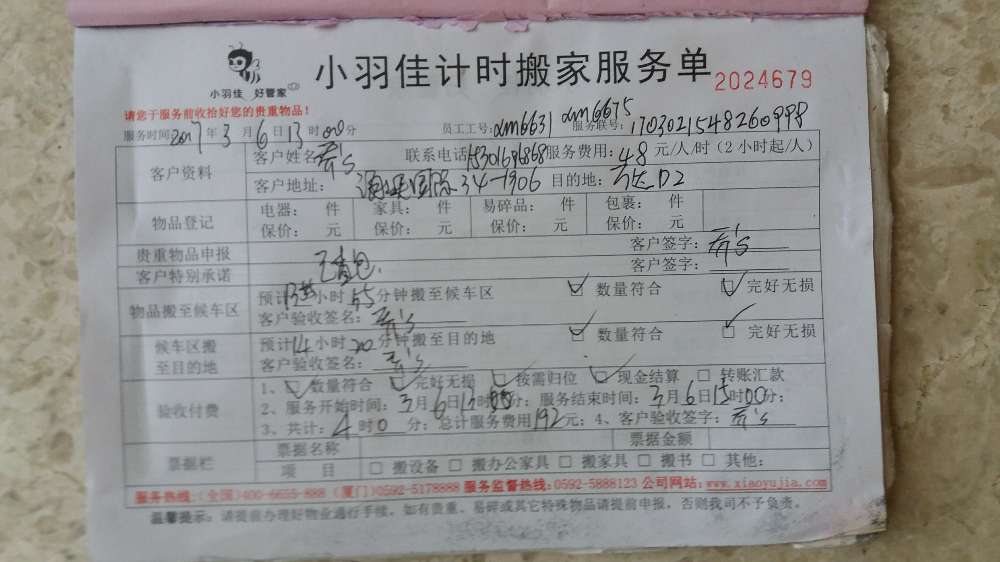 小羽佳计时搬家服务单
2024679
小羽佳 好管家
请您于服务前收拾好您的贵重物品！
服务时间2017年3月6日13时00分 员工工号：xm6631 xm6675 服务联号：1703021548260998
客户资料
客户姓名 联系电话15301696868服务费用：48元/人/时（2小时起/人）
客户地址： 国际34-1906 目的地： D2
物品登记
电器： 件 家具： 件 易碎品： 件 包裹： 件
保价： 元 保价： 元 保价： 元 保价： 元
贵重物品申报 客户签字：
客户特别承诺 客户签字：
物品搬至候车区
预计 小时55分钟搬至候车区 数量符合 完好无损
客户验收签名：
候车区搬至目的地
预计14小时20分钟搬至目的地 数量符合 完好无损
客户验收签名：
验收付费
1、数量符合 完好无损 按需归位 现金结算 转账汇款
2、服务开始时间：3月6日13时 分；服务结束时间：3月6日15时00分；
3、共计：4时0分；总计服务费用192元；4、客户验收签字：
票据栏
票据名称 票据金额
项 目 搬设备 搬办公家具 搬家具 搬书 其他：
服务热线：(全国)400-6655-888 (厦门)0592-5178888 服务监督热线:0592-5888123 公司网站：www.xiaoyujia.com
温馨提示：请提前办理好物业通行手续。如有贵重、易碎或其它特殊物品请提前申报，否则我司不予负责。